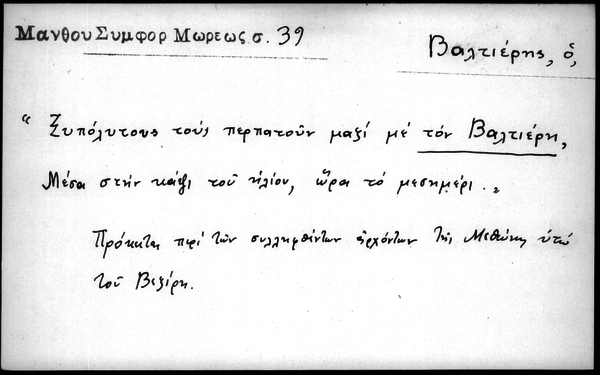 Μανθου Συμφορ Μωρεως σ. 39
Βαλτιέρης, ὁ,
“ Ξυπόλυτους τούς περπατοῦν μαζί μέ τόν Βαλτιέρη,
Μέσα στήν κάψι τοῦ ἡλίου, ὥρα τό μεσημέρι. „
Πρόκειται περί τῶν συλληφθέντων ἀρχόντων τῆς Μεθώνης ὑπό
τοῦ Βεζίρη.